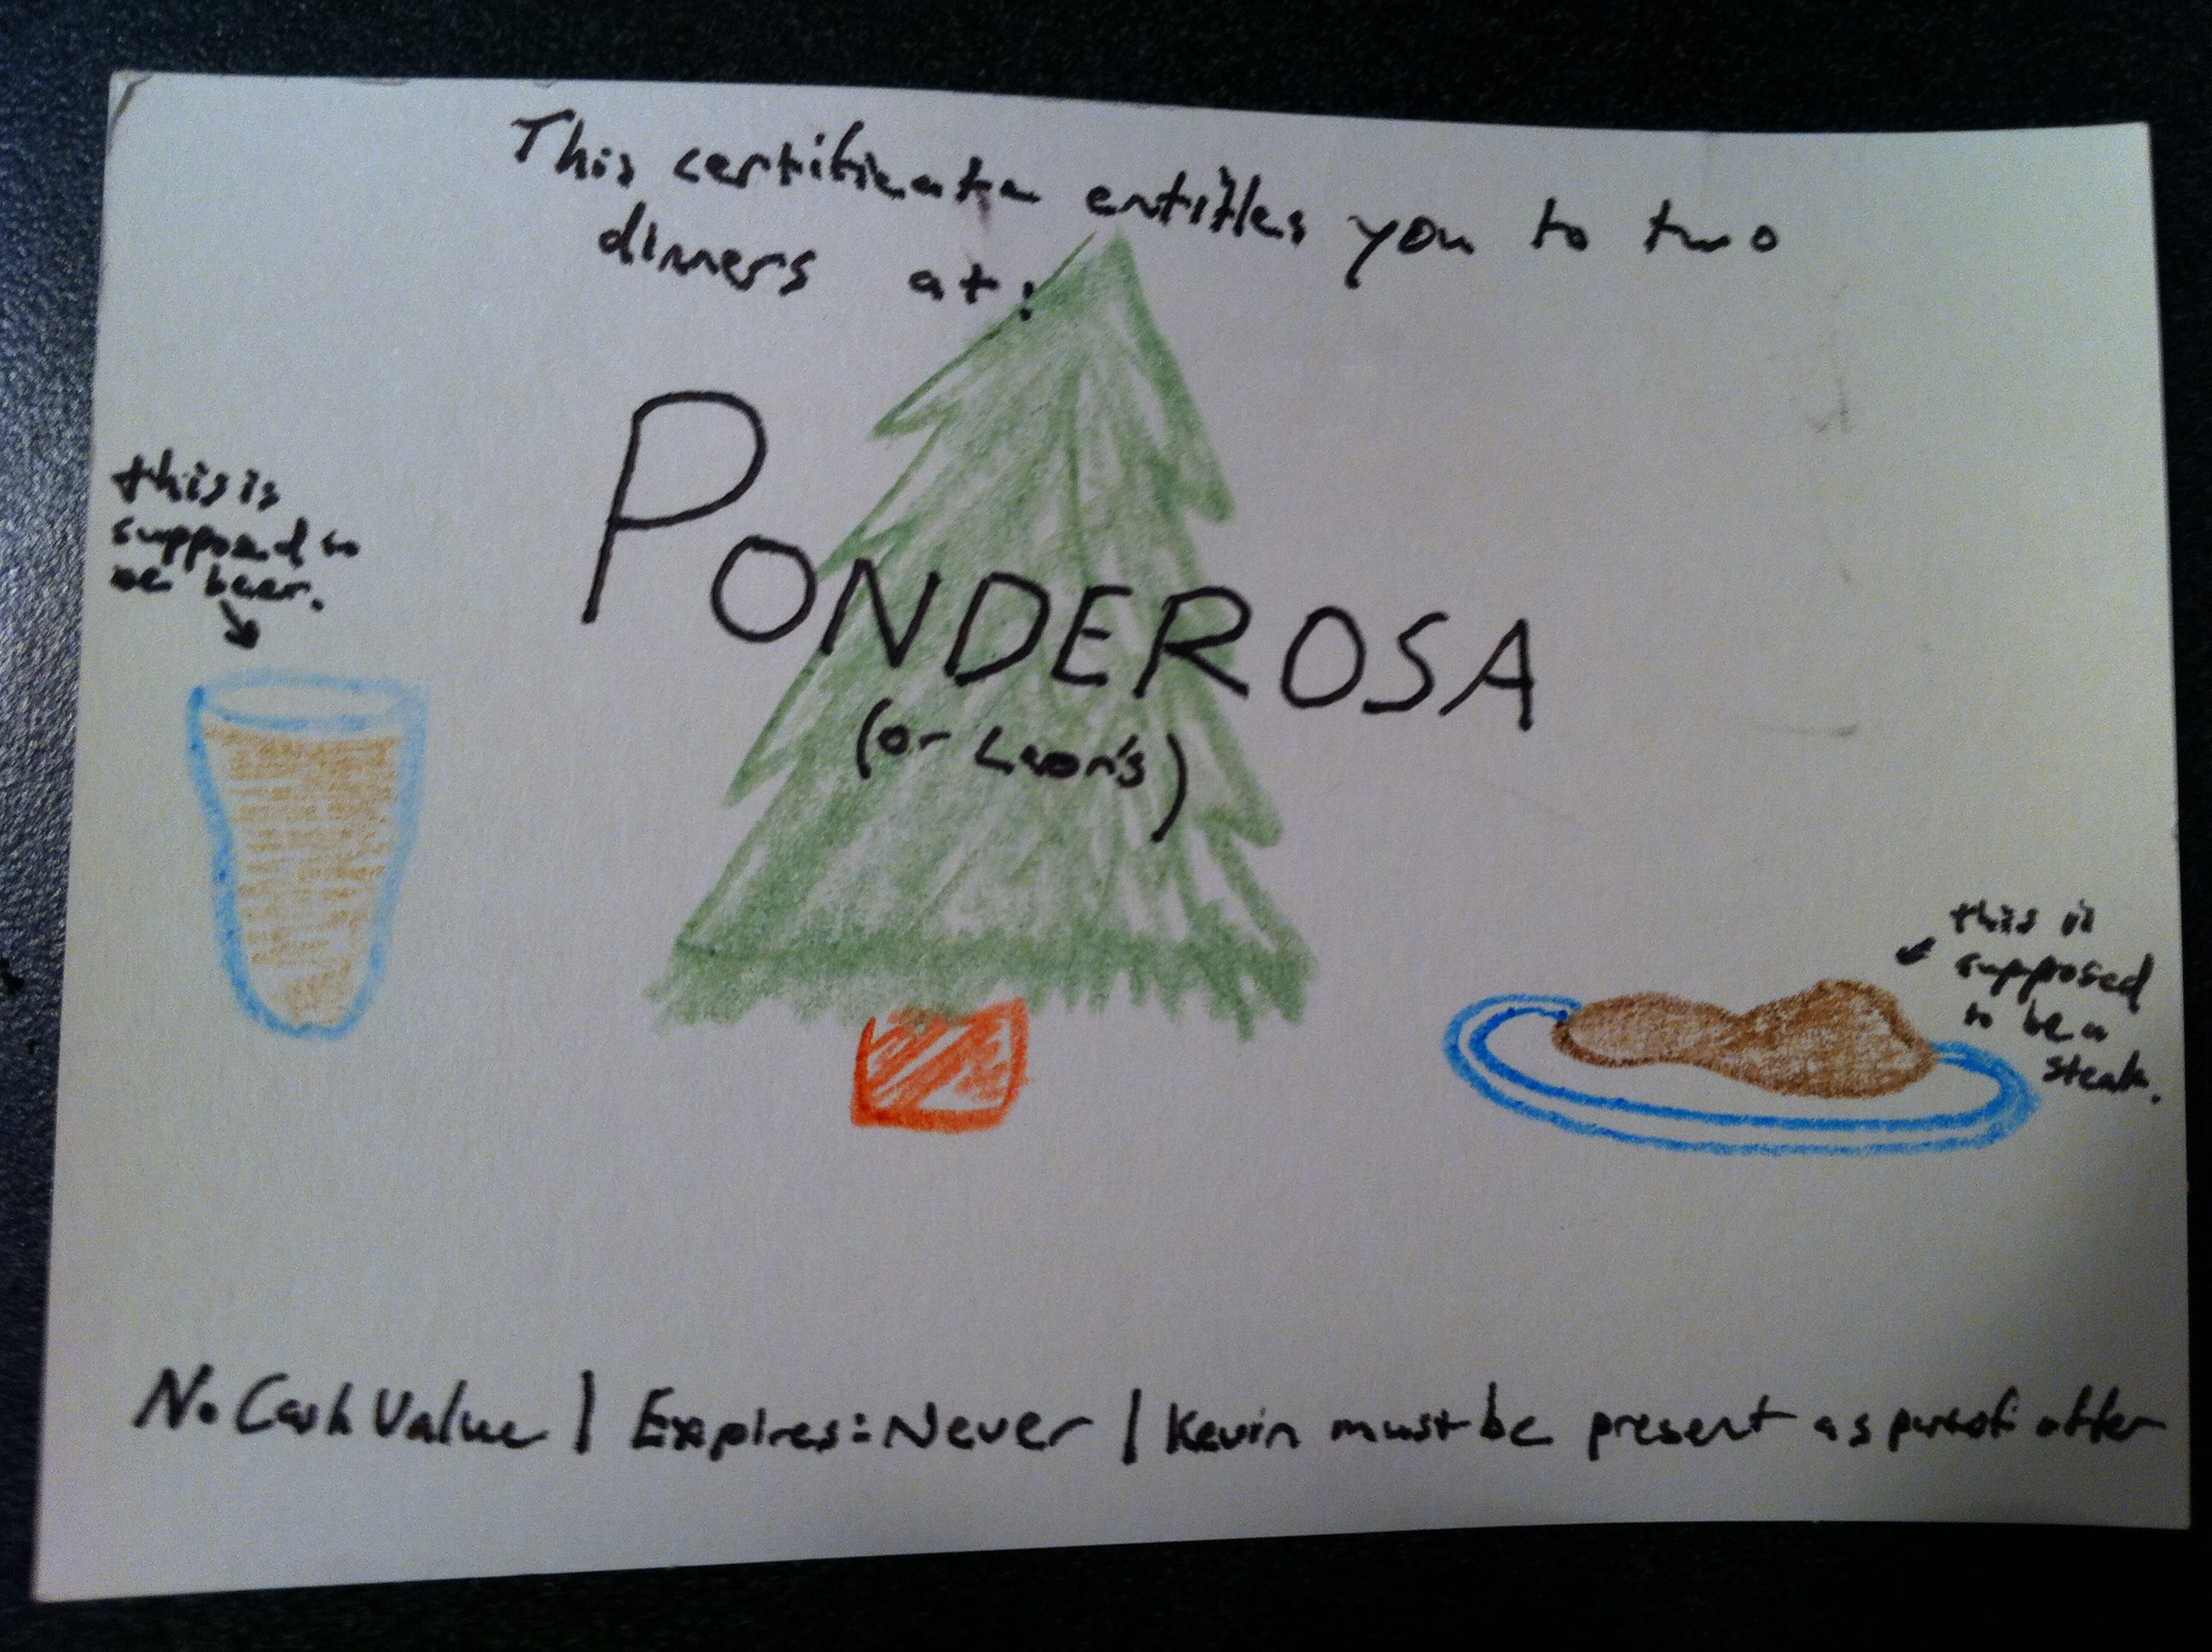 This certificate entitles you to two
dinners at:
PONDEROSA
(or Leon's)
this is
supposed to
be beer.
this is
supposed
to be a
steak.
No Cash Value | Expires: Never | Kevin must be present as part of offer